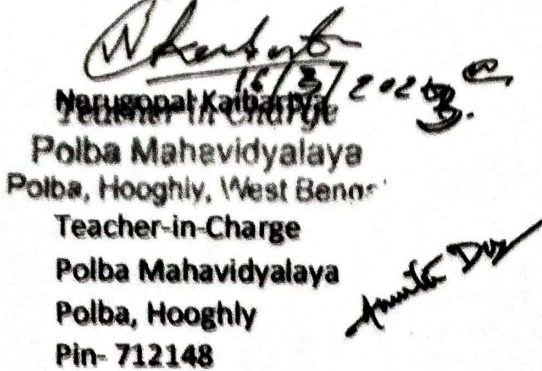 16/3/2023.
Narugopal Kaibartya
Teacher in Charge
Polba Mahavidyalaya
Polba, Hooghly, West Beng
Teacher-in-Charge
Polba Mahavidyalaya
Polba, Hooghly
Pin- 712148